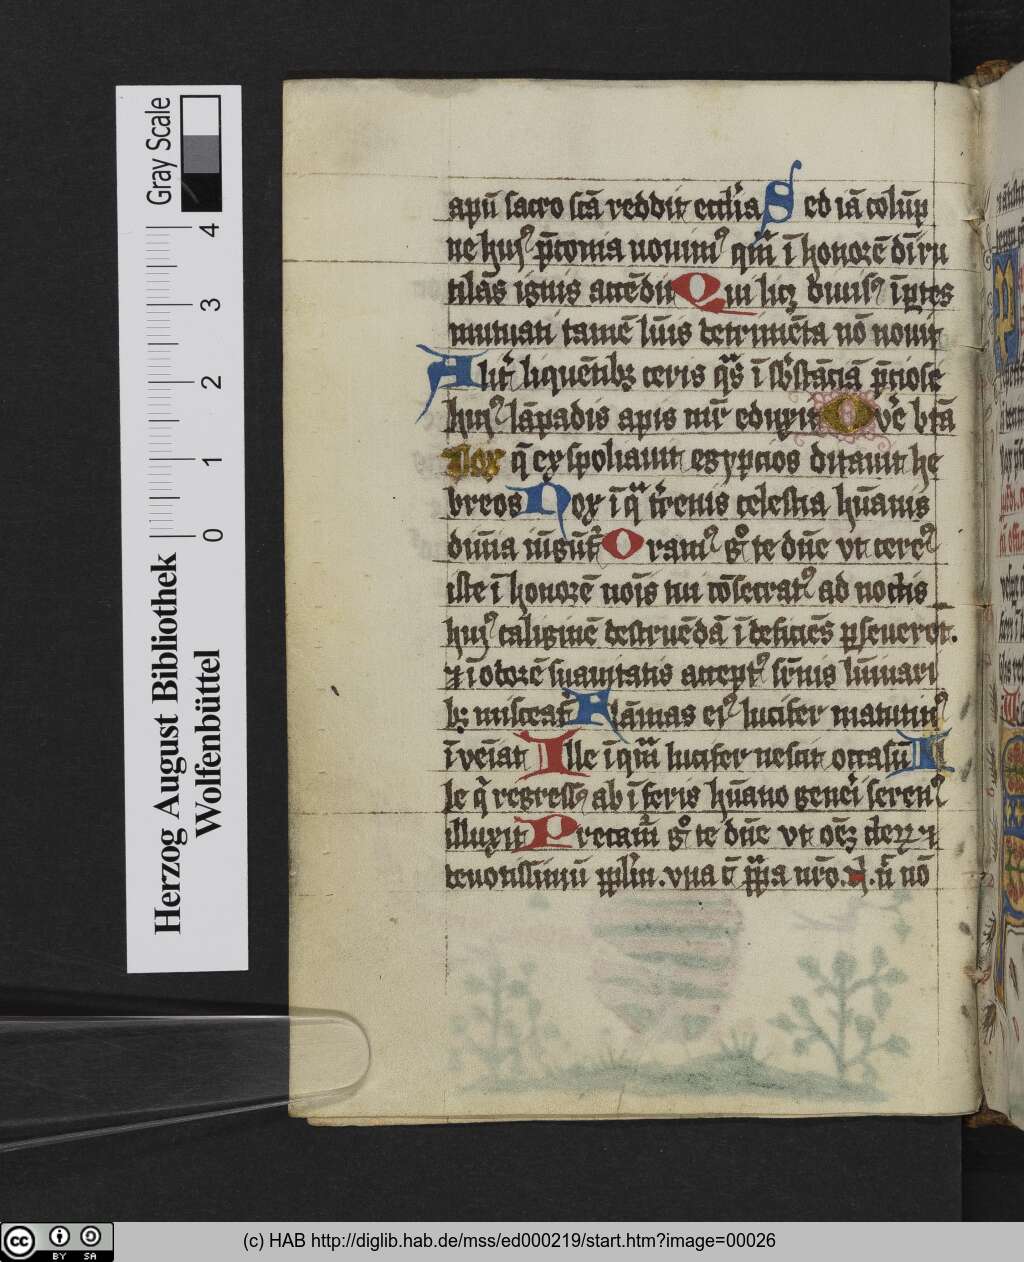 apū sacro scā reddit eccl'ia Sed iā colūp
ne huiꝰ p̄conia nouimꝰ qm̄ ī honorē dī ru
tilās ignis accēdit Qui licꝫ diuisꝰ ī p̱tes
mutuati tamē lūis detrimēta nō nouit
Alit' liquētibꝫ ceris qͣs ī sb'stāciā p̄ciose
huiꝰ lāpadis apis mr̄ eduxit O v'e btā
Nox q̄ exspoliauit egypcios ditauit he
breos Nox ī qͣ t'renis celestia hūanis
diuīa iūgūt' Oramꝰ gͦ te dn̄e vt cereꝰ
iste ī honorē noīs tui cōsecratꝰ ad noctis
huiꝰ caliginē destruēdā īdeficiēs p̱seueret.
⁊ ī odorē suauitatis acceptꝰ sup̄nis lūinari
bꝫ misceat' Flāmas eiꝰ lucifer matutinꝰ
īveīat Ille īquā lucifer nescit occasū Il
le q' regressꝰ ab īferis hūano gen'ei serenꝰ
illuxit Precam' gͦ te dn̄e vt oēꝫ cleꝝ ⁊
deuotissimū pp̱l'm . vna c̄ pp̄a nr̄o . N . n̄ nō
Gray Scale
4
3
2
1
0
Herzog August Bibliothek
Wolfenbüttel
cc BY SA
(c) HAB http://diglib.hab.de/mss/ed000219/start.htm?image=00026